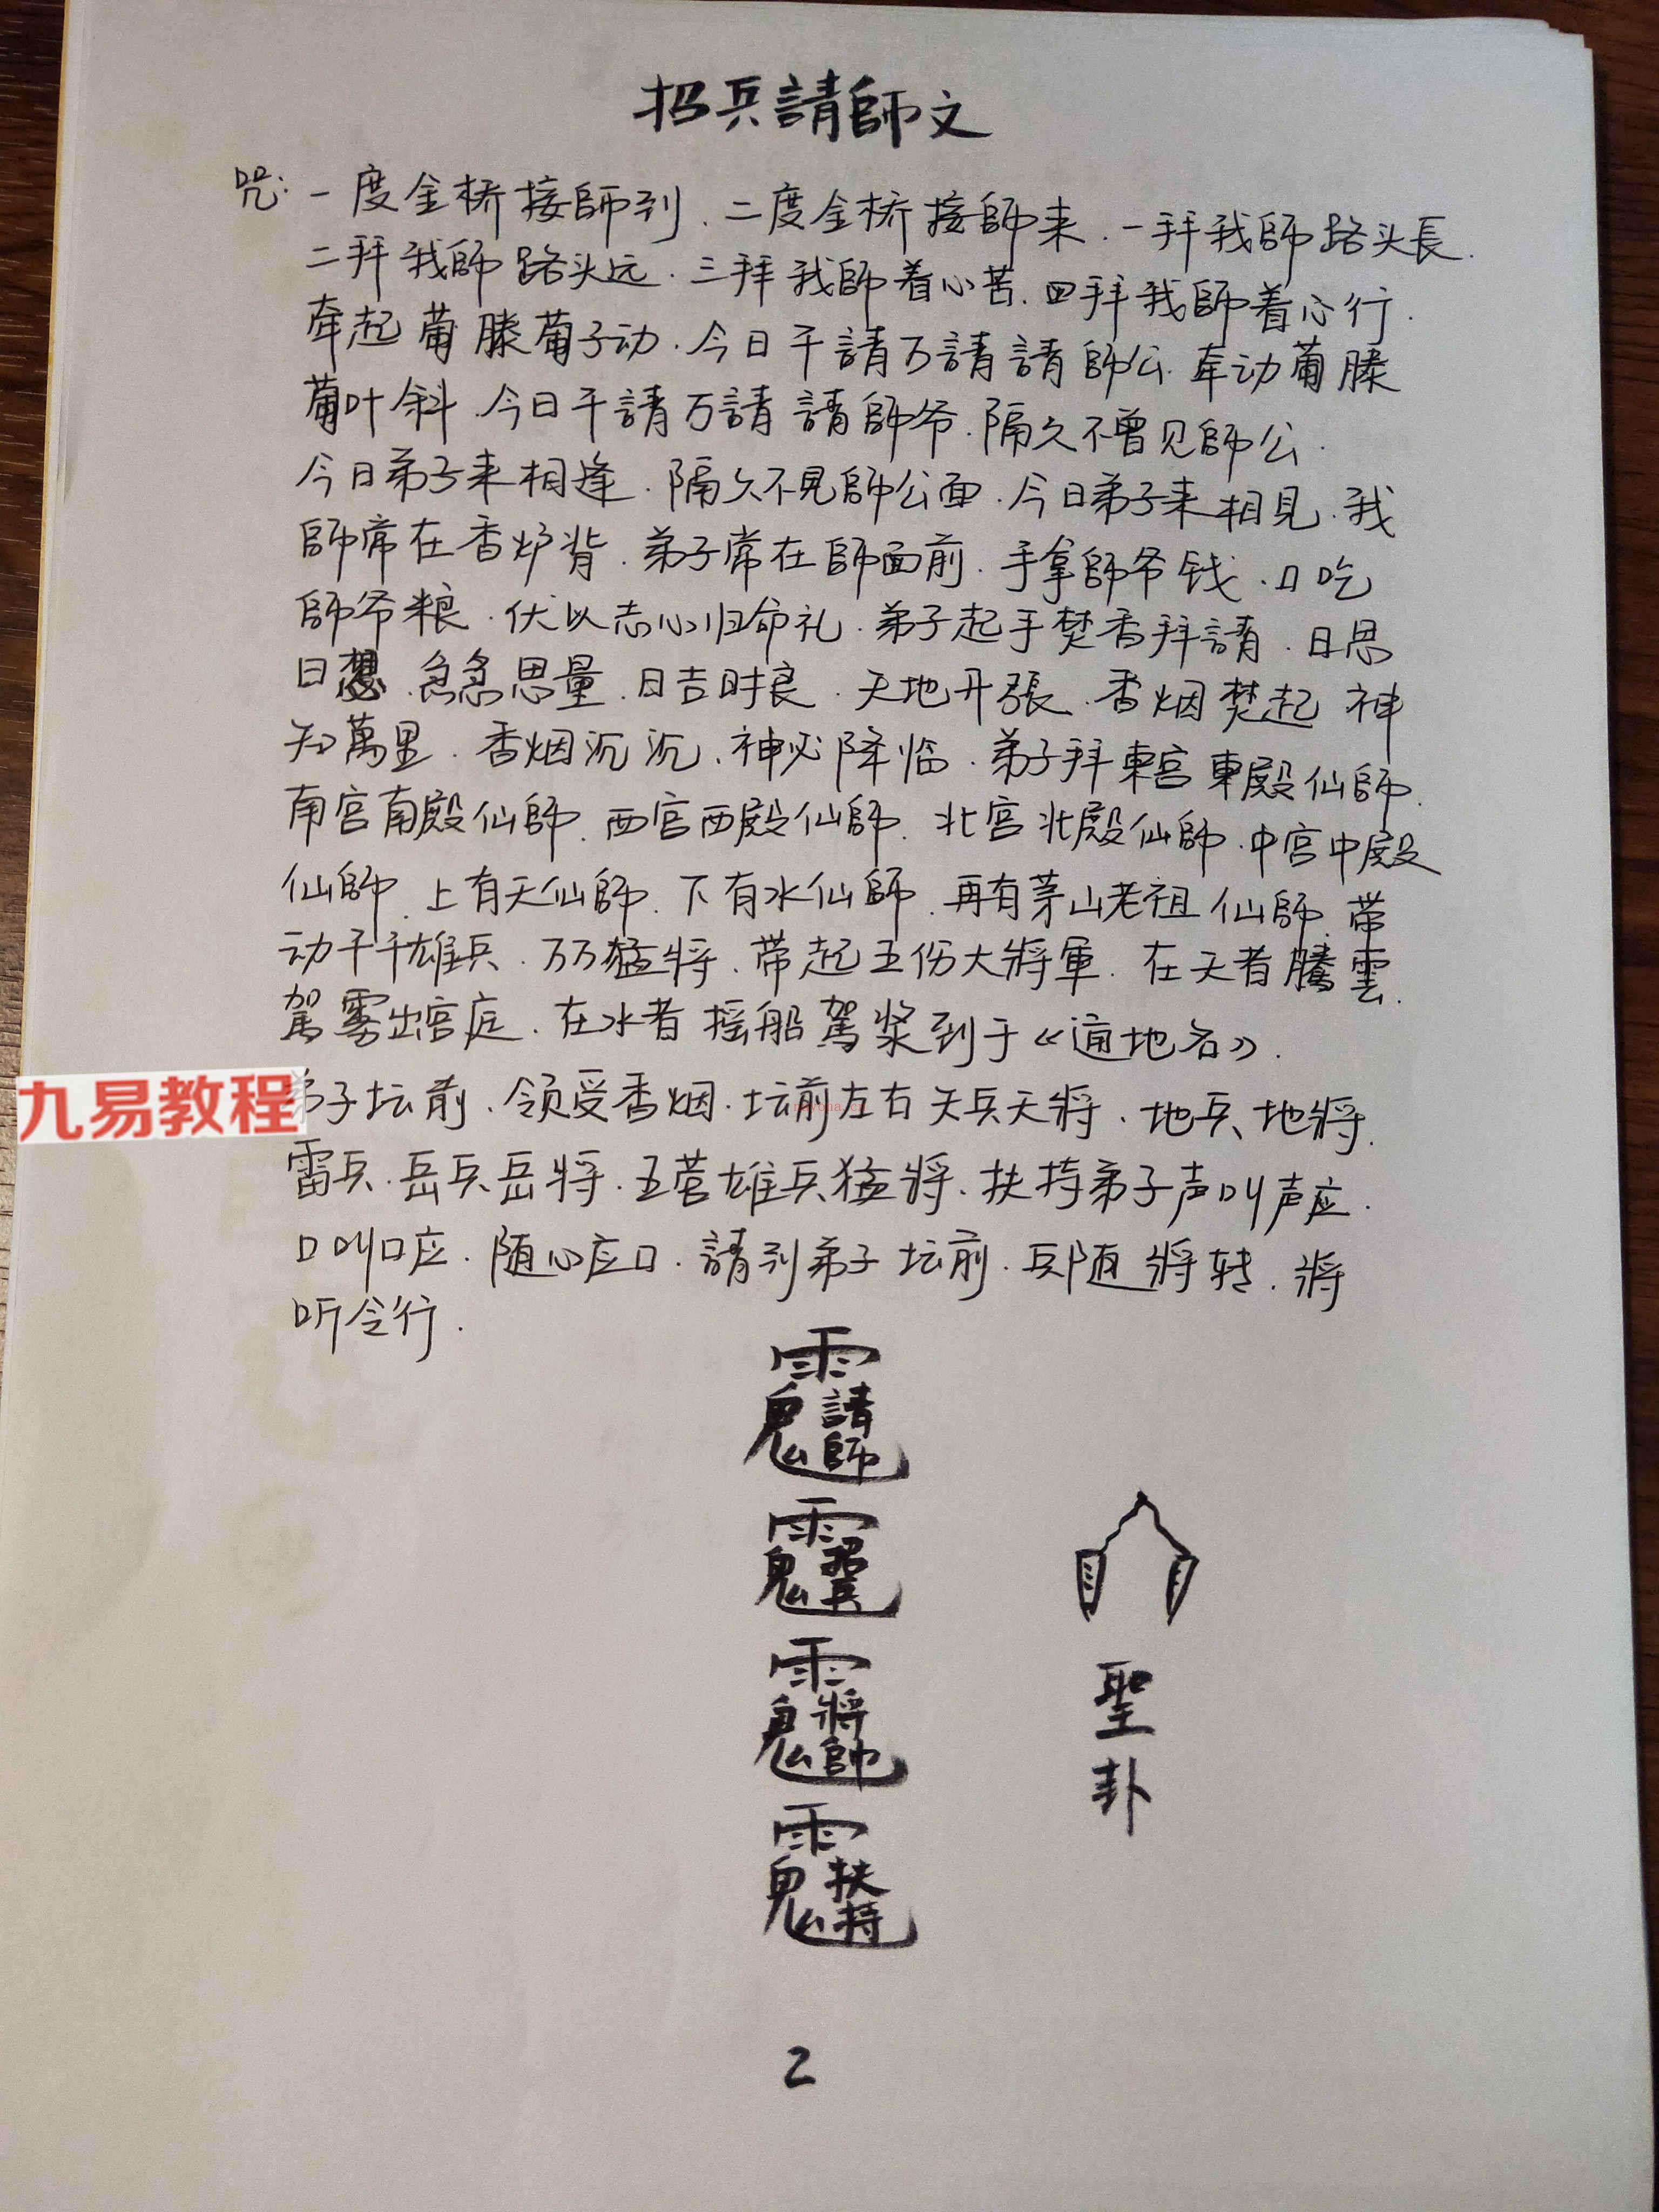 招兵請師文
咒:一度金桥接師到.二度金桥接師来.一拜我師路头長.
二拜我師路头远.三拜我師着心苦.四拜我師着心行.
牵起葡滕葡子动.今日千請万請請師公.牵动葡滕
葡叶斜.今日千請万請請師爷.隔久不曾见師公.
今日弟子来相逢.隔久不見師公面.今日弟子来相見.我
師常在香炉背.弟子常在師面前.手拿師爷钱.口吃
師爷粮.伏以志心归命礼.弟子起手焚香拜請.日思
日想.急急思量.日吉时良.天地开張.香烟焚起 神
知萬里.香烟沉沉.神必降临.弟子拜東宫東殿仙師.
南宫南殿仙師.西宫西殿仙師.北宫北殿仙師.中宫中殿
仙師.上有天仙師.下有水仙師.再有茅山老祖仙師.带
动千千雄兵.万万猛將.带起五伤大將軍.在天者騰雲
駕雾出宫庭.在水者摇船駕浆到于《通地名》.
九易教程
弟子坛前.领受香烟.坛前左右天兵天將.地兵、地將.
雷兵.岳兵岳將.五营雄兵猛將.扶持弟子声叫声应.
口叫口应.随心应口.請到弟子坛前.兵随將转.將
听令行.
雨鬼請師
雨鬼招兵
雨鬼將帥
雨鬼扶持
聖
卦
2